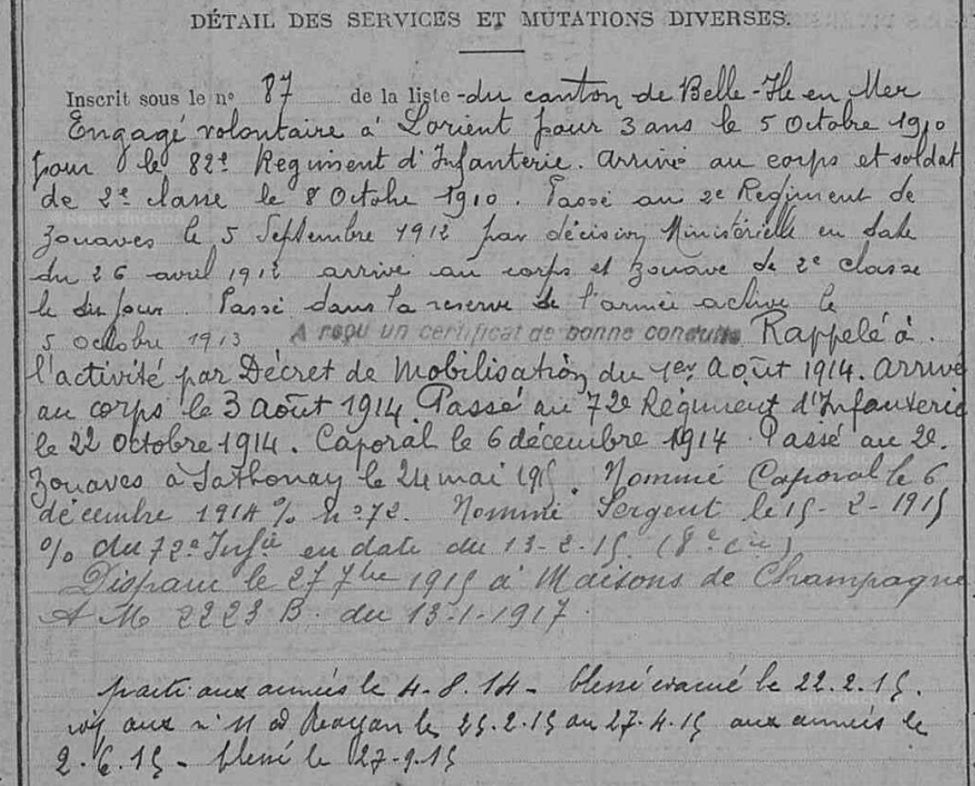 DÉTAIL DES SERVICES ET MUTATIONS DIVERSES.
Inscrit sous le no 87 de la liste - du canton de Belle-Ile en Mer
Engagé volontaire à Lorient pour 3 ans le 5 Octobre 1910
pour le 82e Régiment d'Infanterie. Arrivé au corps et soldat
de 2e classe le 8 Octobre 1910. Passé au 2e Régiment de
Zouaves le 5 Septembre 1912 par décision Ministérielle en date
du 26 avril 1912 arrivé au corps et Zouave de 2e classe
le dit jour. Passé dans la réserve de l'armée active le
5 octobre 1913 A reçu un certificat de bonne conduite Rappelé à
l'activité par Décret de Mobilisation du 1er Août 1914. Arrivé
au corps le 3 Août 1914. Passé au 72e Régiment d'Infanterie
le 22 octobre 1914. Caporal le 6 décembre 1914. Passé au 2e
Zouaves à Sathonay le 24 mai 1915. Nommé Caporal le 6
décembre 1914 % No 72. Nommé Sergent le 15-2-1915
% du 72e Infie en date du 13-2-15. (8e Cie)
Disparu le 27 7bre 1915 à Maisons de Champagne
A M 2223 B. du 13-1-1917.
parti aux armées le 4-8.14 - blessé évacué le 22.2.15.
aux n° 11 Royan le 25.2.15 au 27.4.15 aux armées le
2.6.15 - blessé le 27-9-15